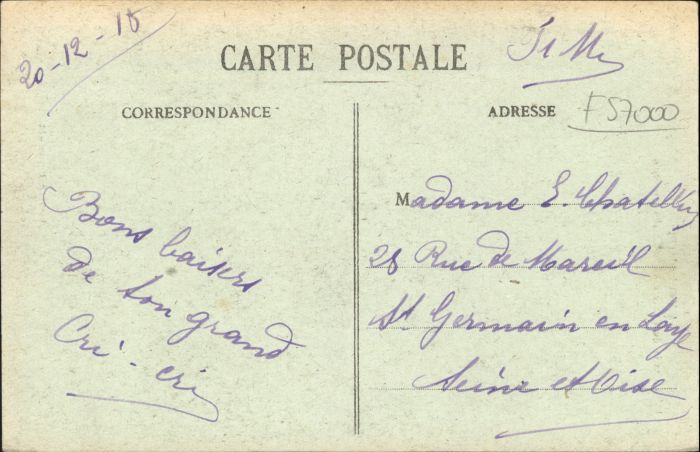 20-12-15
CARTE POSTALE
F M
CORRESPONDANCE
ADRESSE
F57000
Bons baisers
de ton grand
Cri-cri
Madame E.
28 Rue de Mareil
St Germain en Laye
Seine et Oise